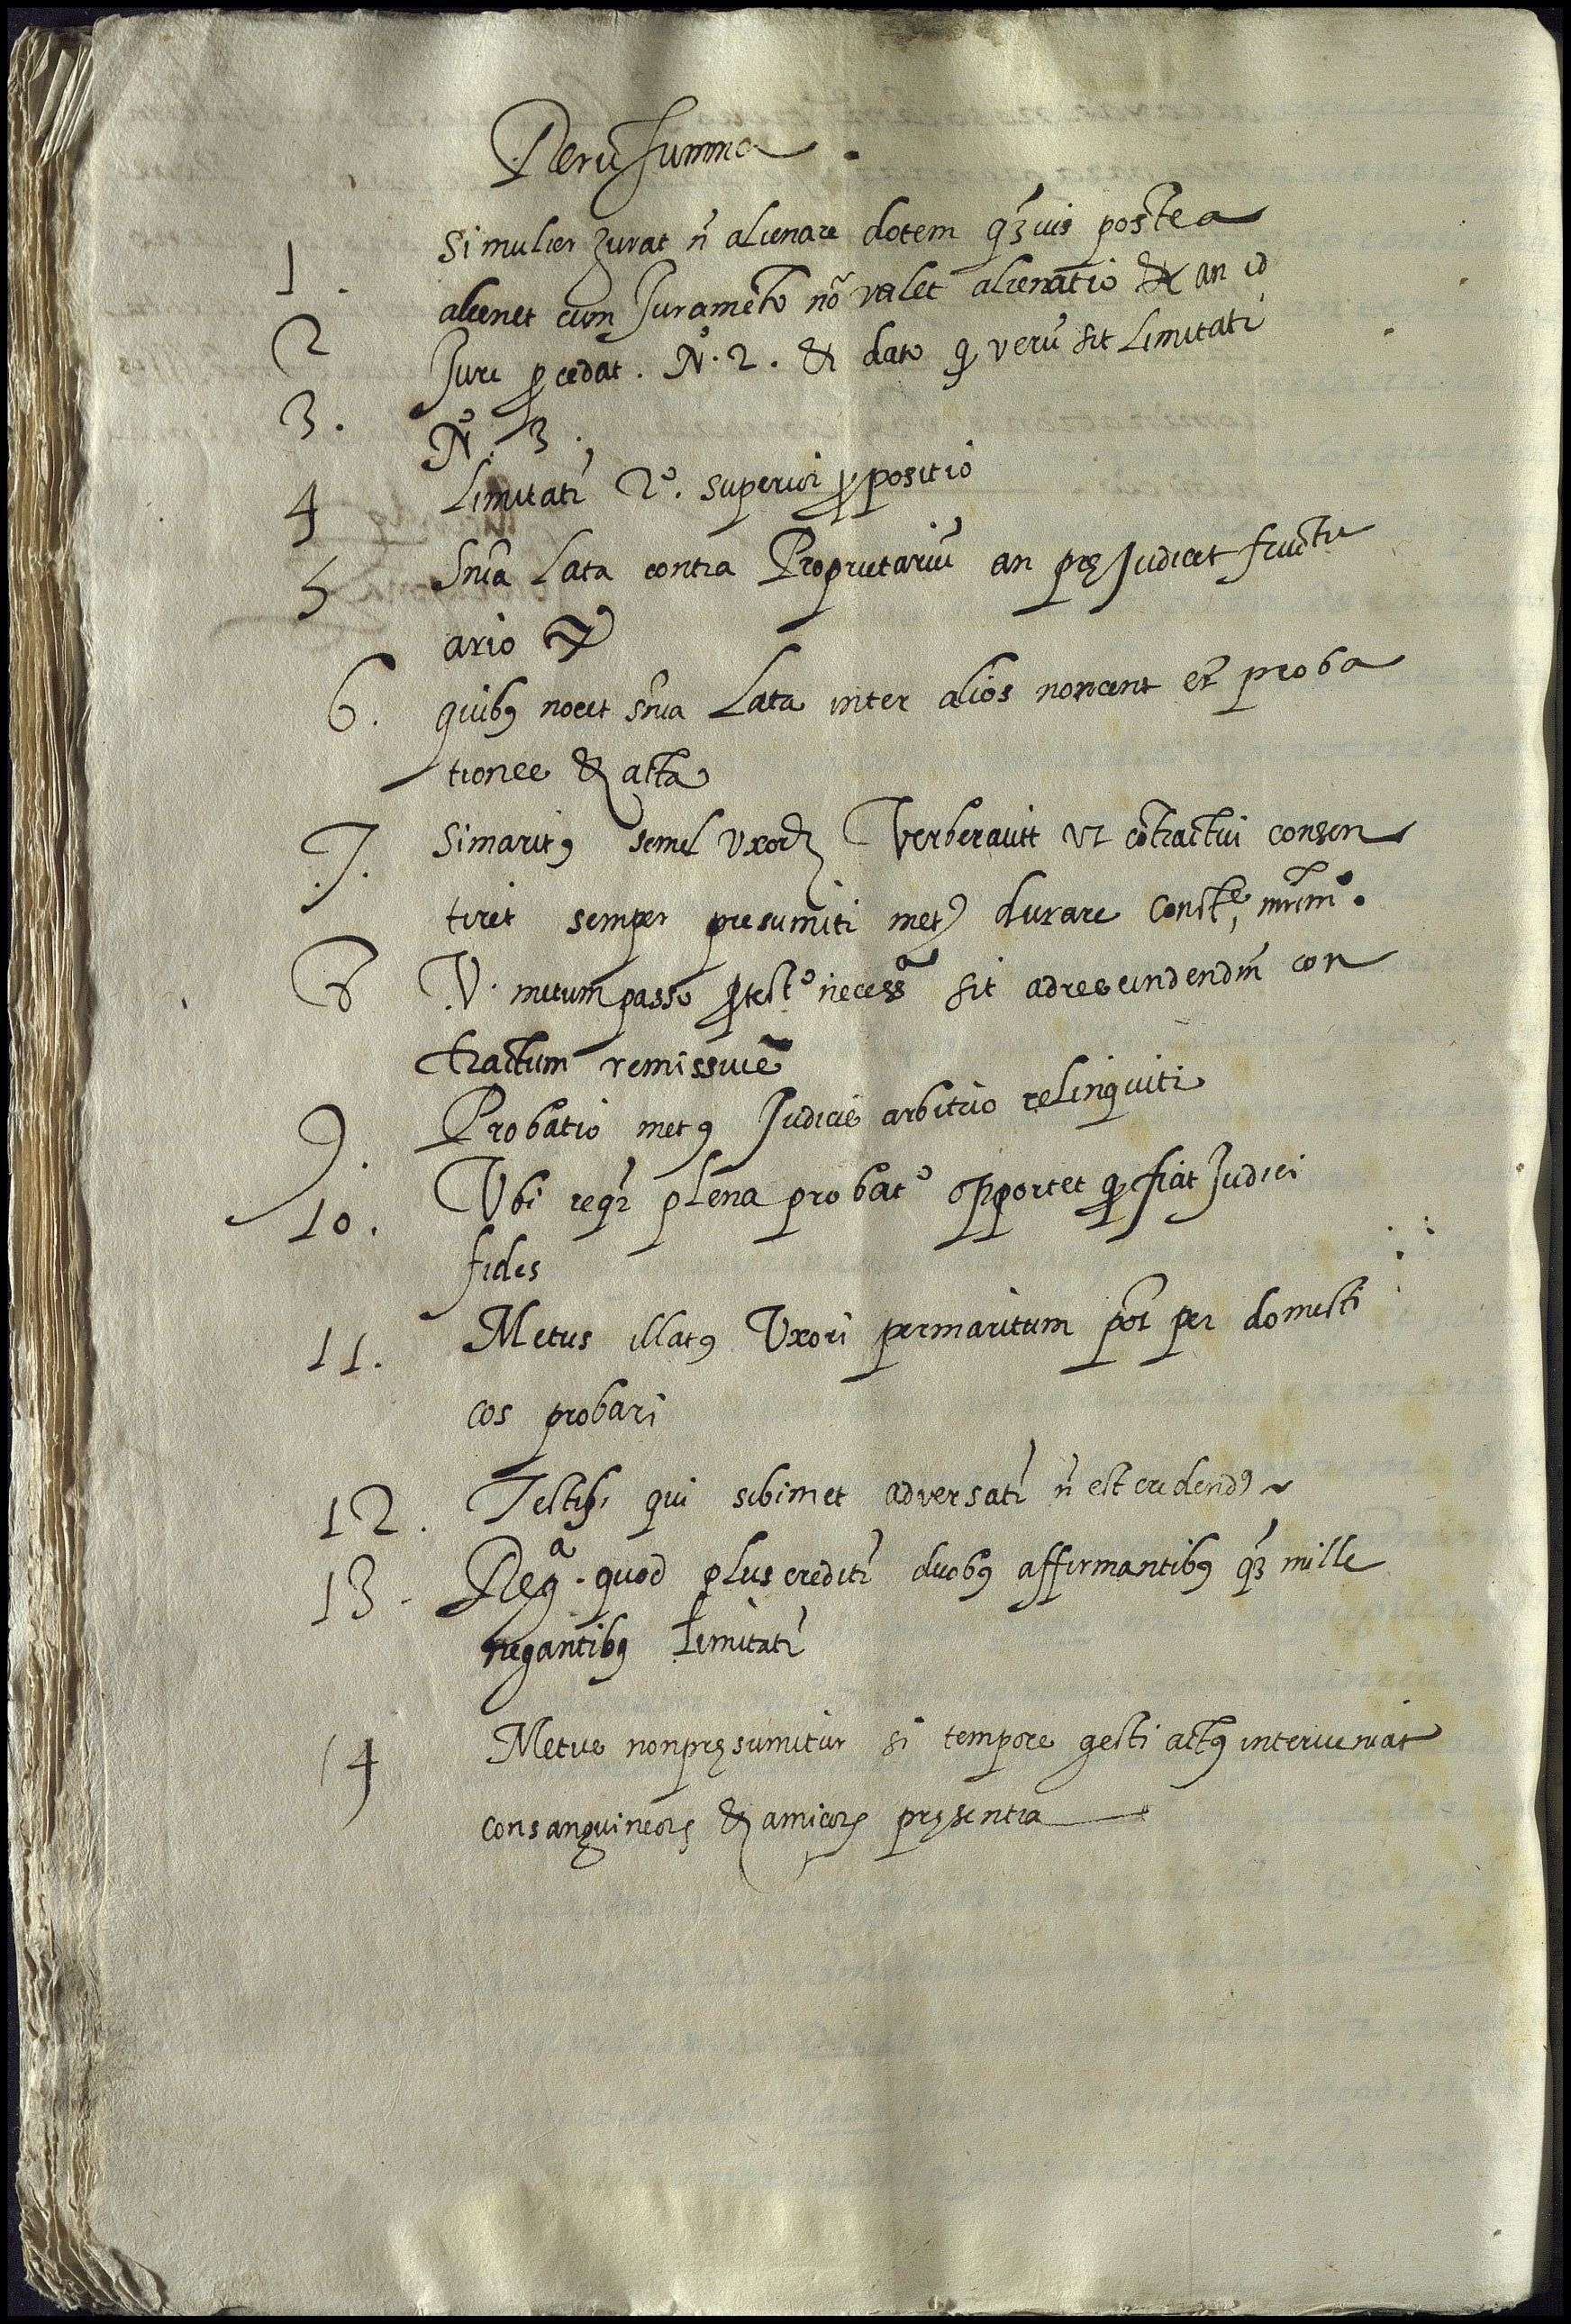 Rerũ summa.
1. Si mulier Jurat ñ alienare dotem q̃vis postea
alienet cum Juramẽto nõ valet alienatio & an id
2 Jure p̱cedat. N.º 2. & dato q̱ verũ sit Limitati
3. N.º 3.
4 Limitatr̃ 2º. superior p̱positio
5 Snĩa Lata contra Proprietariũ an pręJudicet fructu
ario
6. quibꝰ nocet snĩa Lata inter alios nocent et proba
tiones & acta
7. Si maritꝰ semel Vxorẽ Verberavit vt cõtractui consen
tiret semper presumitr metꝰ durare Const.e mr̃im.º
8 V. metum passo p̱test.º necess.a sit ad rescindendũ con
tractum remissivè
9. Probatio metꝰ Judicis arbitrio relinquitr
10. Vbi reqr̃ plena probat.º opportet q̱ fiat Judici
fides
11. Metus illatꝰ Vxori per maritum põt per domesti
cos probari
12. Testibꝰ qui sibimet adversatr̃ ñ est credendꝰ
13. Reg.a quod plus creditr̃ duobꝰ affirmantibꝰ q̃ mille
negantibꝰ Limitatr̃
14 Metus non pręsumitur si tempore gesti actꝰ interveniat
consanguineoꝝ & amicoꝝ pręsentia